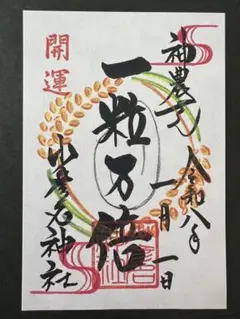 神農さん
令和八年
一月一日
一粒万倍
開運
少彦名神社